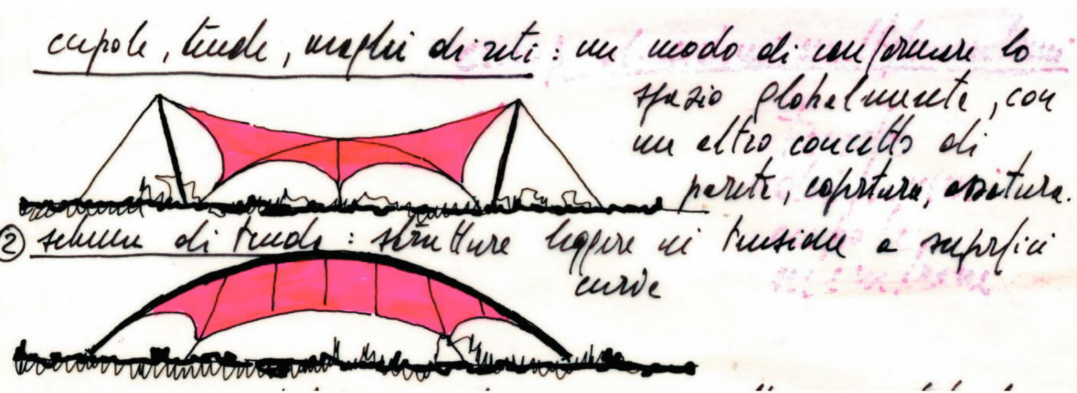 cupole, tende, maglie di reti: un modo di conformare lo
spazio globalmente, con
un altro concetto di
parete, copertura, ossatura.
② schemi di tende: strutture leggere in tensione a superfici
curve